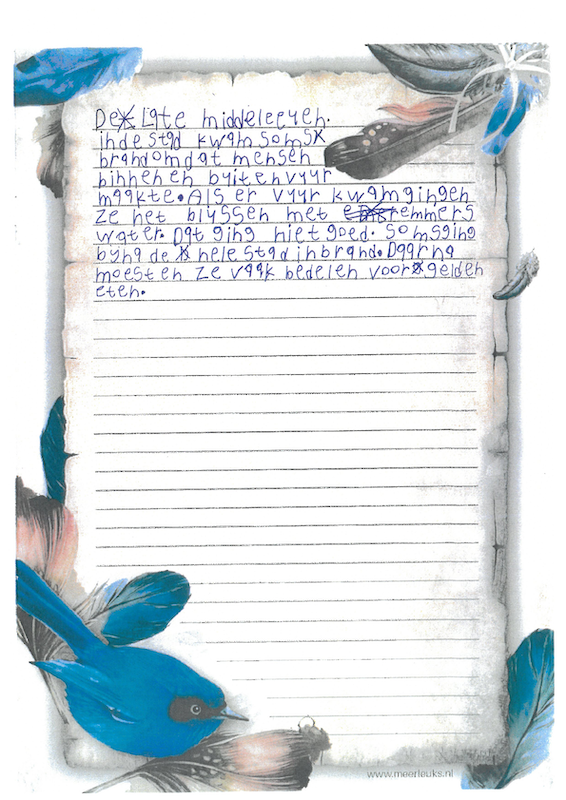 De Late middeleeuen.
in de stad kwam soms
brand omdat mensen
binnen en buiten vuur
maakte. Als er vuur kwam gingen
ze het blussen met emmers
water. Dat ging niet goed. Soms ging
byna de hele stad in brand. Daarna
moesten ze vaak bedelen voor geld en
eten.
www.meerleuks.nl